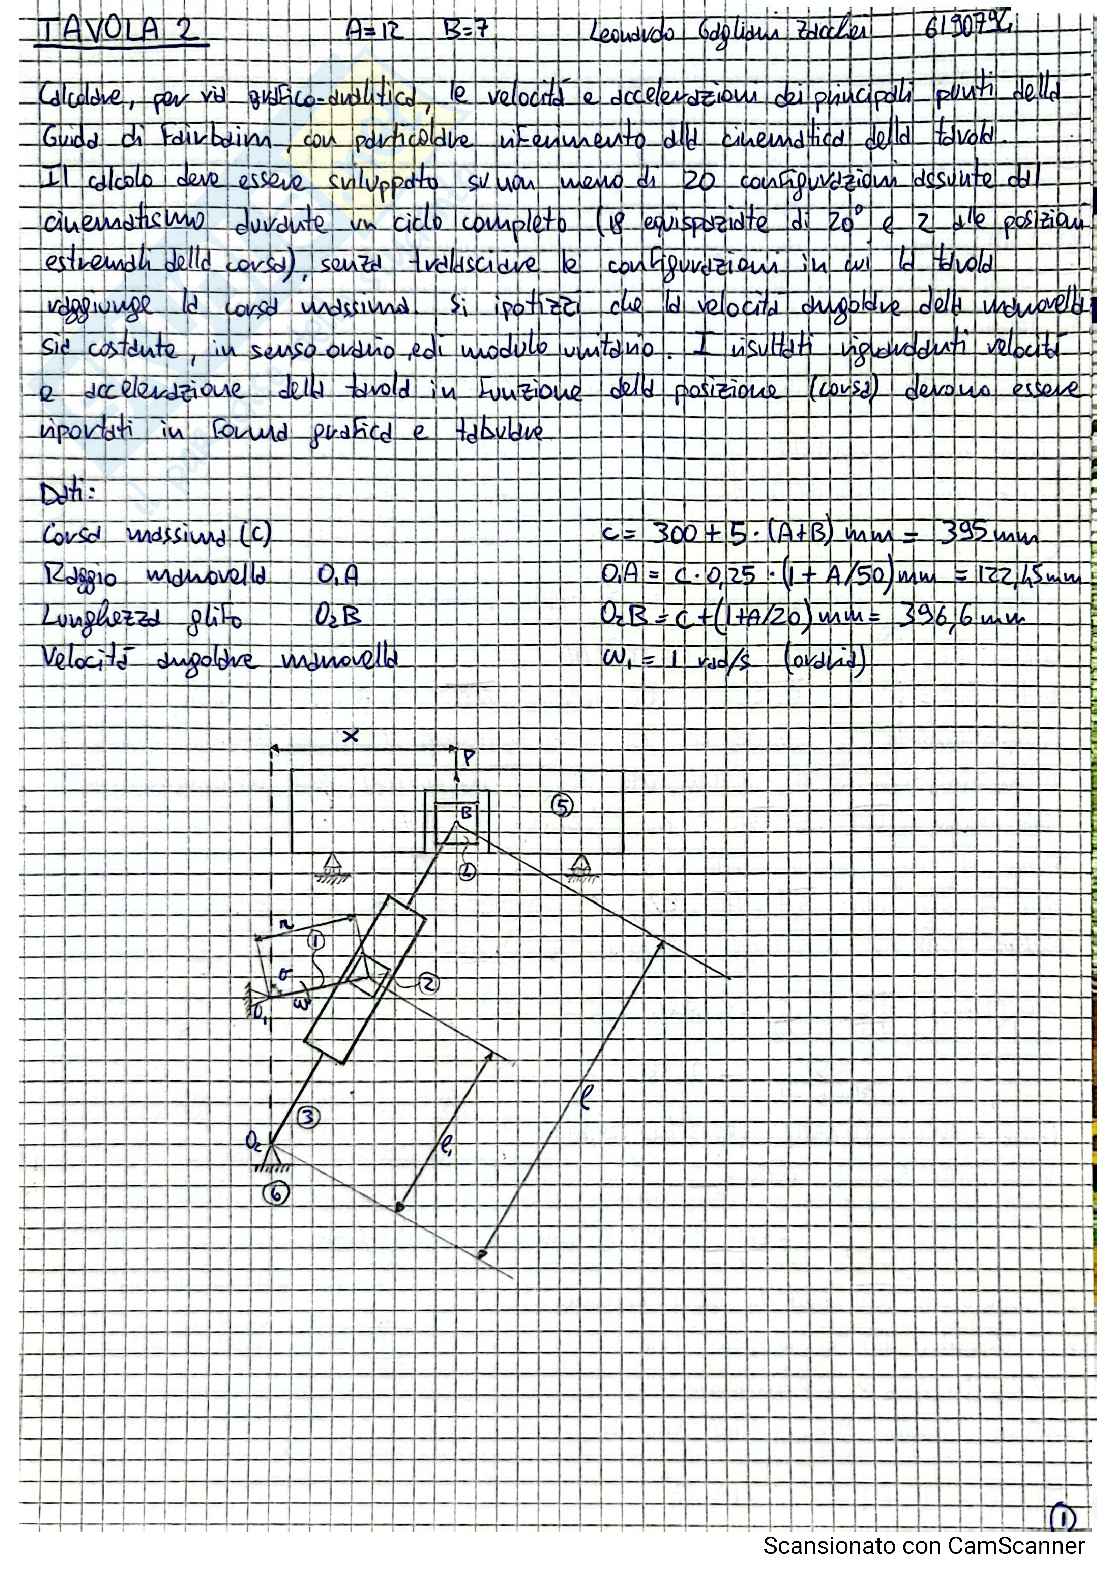 TAVOLA 2 A=12 B=7 Leonardo Gagliani Zacchei 6190794
Calcolare, per via grafico-analitica, le velocità e accelerazioni dei principali punti della
Guida di Fairbairn, con particolare riferimento alla cinematica della tavola.
Il calcolo deve essere sviluppato su non meno di 20 configurazioni assunte dal
cinematismo durante un ciclo completo (18 equispaziate di 20° e 2 alle posizioni
estremali della corsa), senza tralasciare le configurazioni in cui la tavola
raggiunge la corsa massima. Si ipotizzi che la velocità angolare della manovella
sia costante, in senso orario, e di modulo unitario. I risultati riguardanti velocità
e accelerazione della tavola in funzione della posizione (corsa) devono essere
riportati in forma grafica e tabulare
Dati:
Corsa massima (C) C = 300 + 5·(A+B) mm = 395 mm
Raggio manovella O₁A O₁A = C·0,25·(1 + A/50) mm = 122,45 mm
Lunghezza glifo O₂B O₂B = C+(1+A/20) mm = 396,6 mm
Velocità angolare manovella ω₁ = 1 rad/s (oraria)
x
P
B
5
4
r
1
2
ω
O₁
l
3
O₂
l₁
6
1
Scansionato con CamScanner